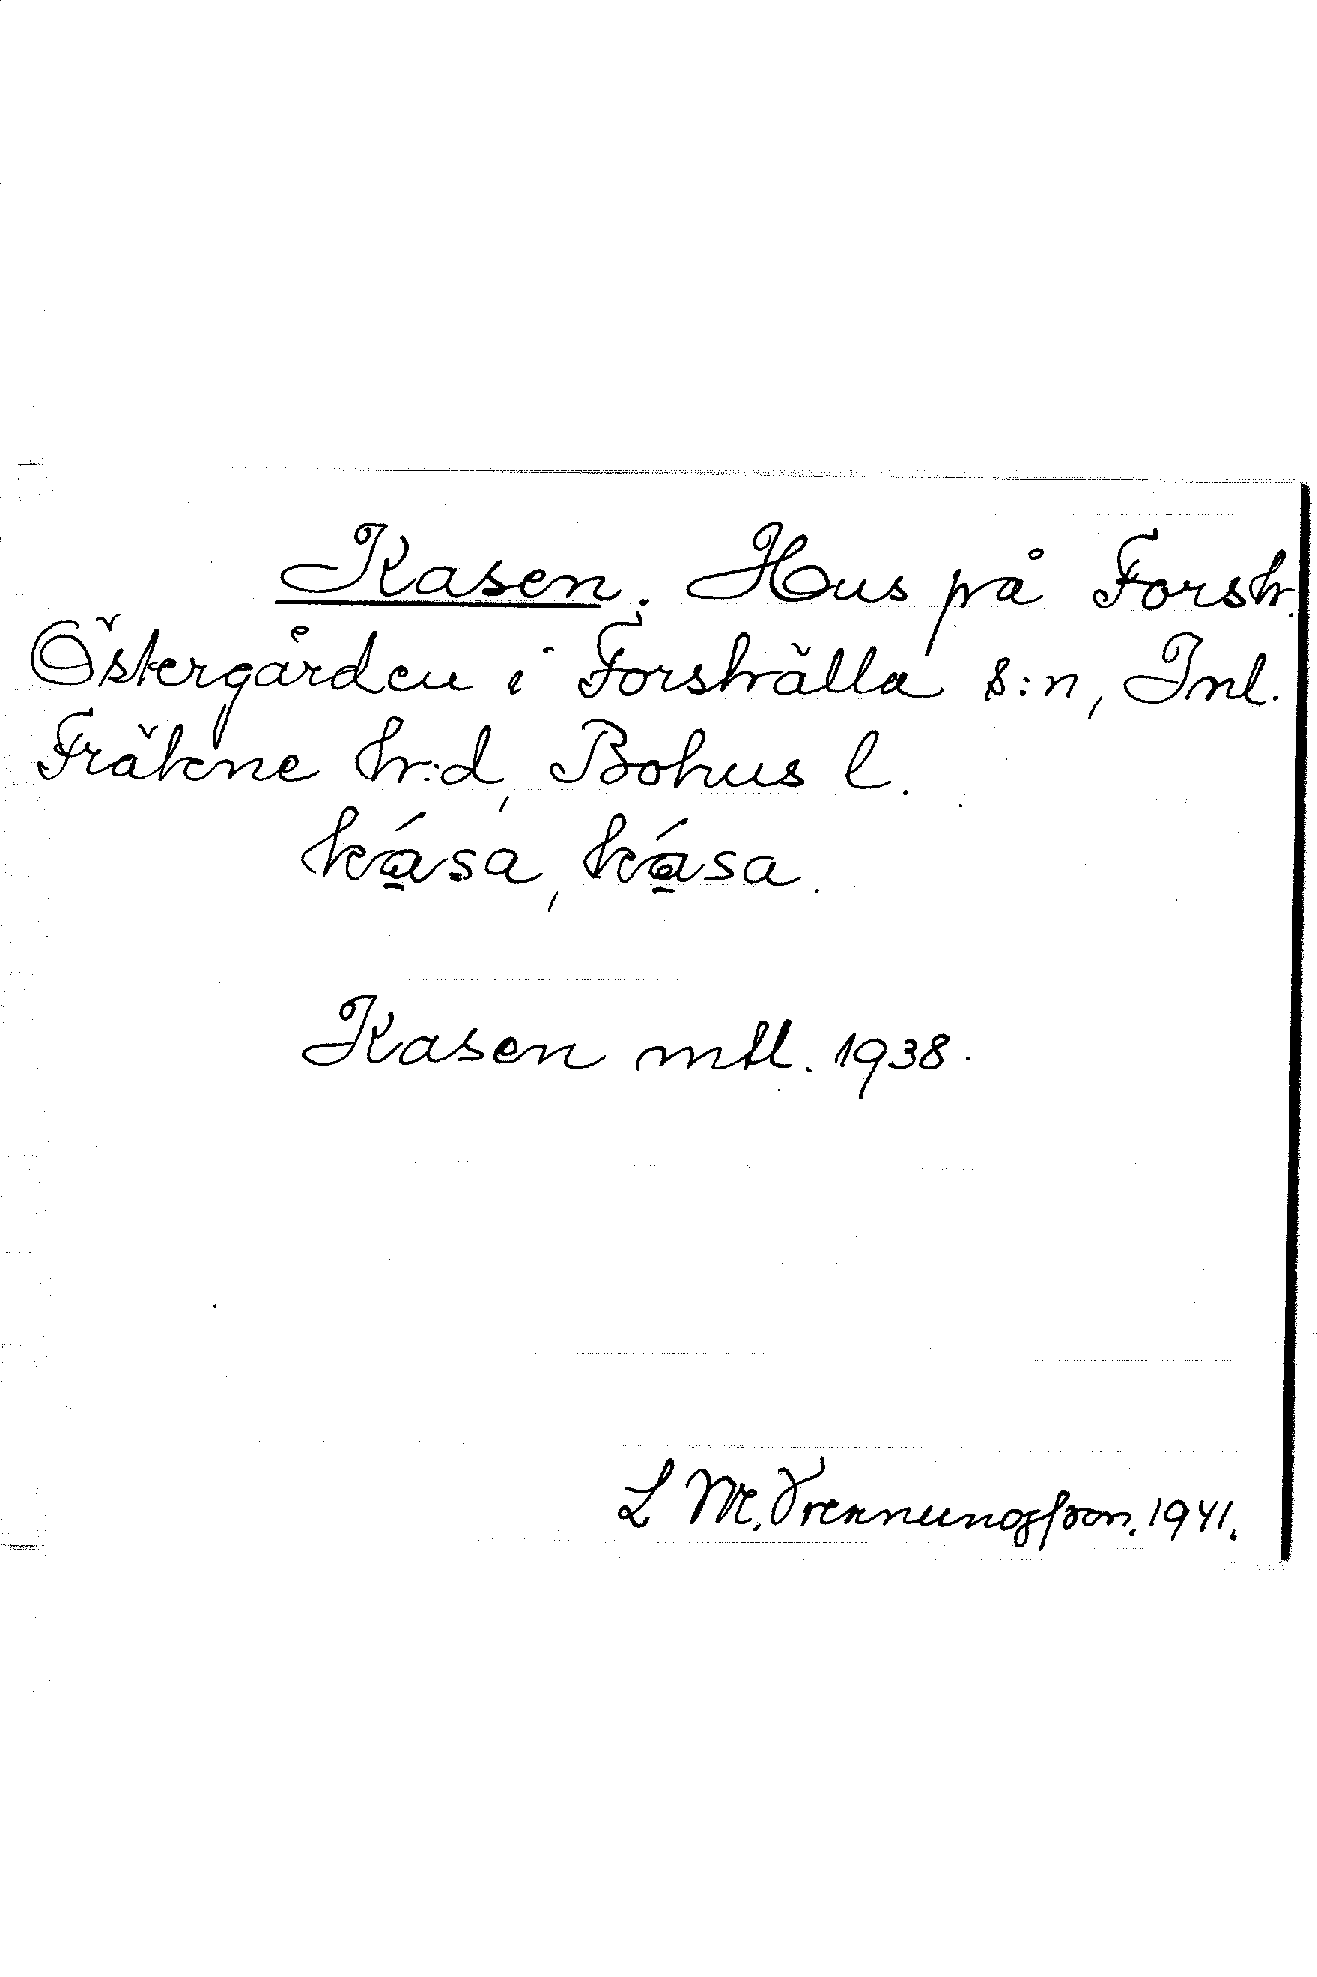 Kasen. Hus på Forsh.
Östergården i Forshälla s:n, Inl.
Fräkne hr:d, Bohus l.
ká̱sa, ká̱sa.
Kasen mtl. 1938.
L M. Svennungsson. 1941.